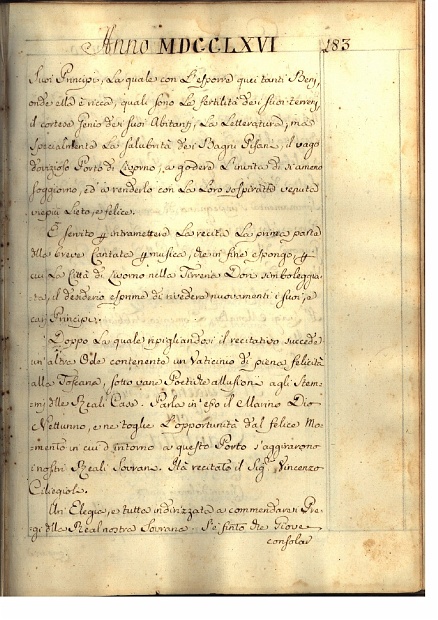 Anno MDCCLXVI 183
Suoi Principi, La quale con L'esporre quei tanti Beni,
onde ella è ricca, quali sono La fertilità dei suoi terreni,
il cortese Genio dei suoi Abitanti, La Letteratura, mà
specialmente La salubrità dei Bagni Pisani, il vago
dovizioso Porto di Livorno, a godere L'invita di sì ameno
soggiorno, ed à renderlo con La Loro sospirata venuta
viepiù Lieto, e felice.
E servito p intramettere La recita La prima parte
della breve Cantata p musica, che in fine espongo, p
cui La Città di Livorno nella Tirrena Dori simboleggia-
ta, il desiderio esprime di rivedere nuovamente i suoi, e
cari Principi.
Doppo La quale ripigliandosi il recitativo succede
un'altra Ode contenente un Vaticinio di piena felicità
alla Toscana, sotto varie Poetiche allusioni agli Stem-
mi delle Reali Case. Parla in essa il Marino Dio
Nettunno, e ne toglie L'opportunità dal felice Mo-
mento in cui d'intorno a questo Porto s'aggirarono
i nostri Reali Sovrani. Hà recitato il Sig.r Vincenzo
Ciliegiols
Un'Elegia, e tutta indirizzata a commendare i Pre-
gi della Real nostra Sovrana. S'è finto che Giove
consolar